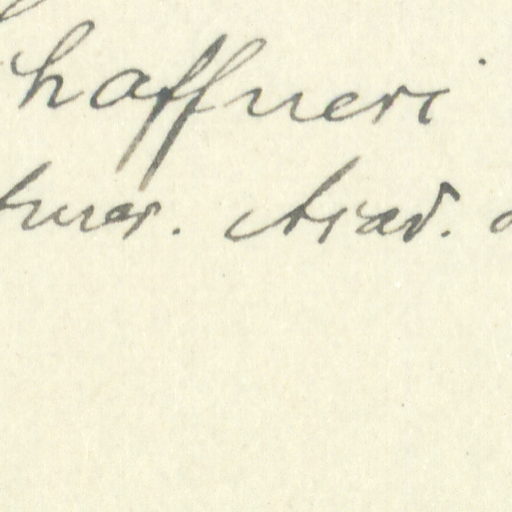 haffneri
Amer. Acad.